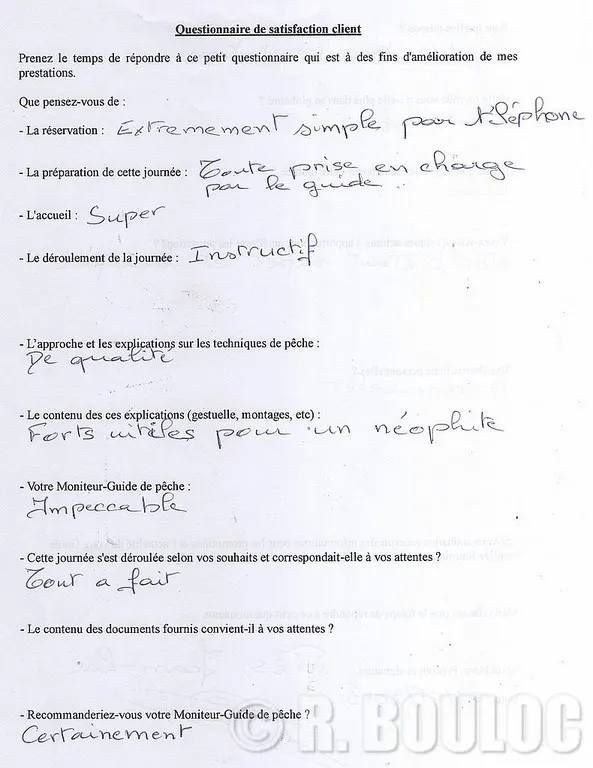 Questionnaire de satisfaction client
Prenez le temps de répondre à ce petit questionnaire qui est à des fins d'amélioration de mes
prestations.
Que pensez-vous de :
- La réservation : Extremement simple par téléphone
- La préparation de cette journée : Toute prise en charge
par le guide..
- L'accueil : Super
- Le déroulement de la journée : Instructif
- L'approche et les explications sur les techniques de pêche :
De qualité
- Le contenu des ces explications (gestuelle, montages, etc) :
Forts utiles pour un néophite
- Votre Moniteur-Guide de pêche :
Impeccable
- Cette journée s'est déroulée selon vos souhaits et correspondait-elle à vos attentes ?
Tout a fait
- Le contenu des documents fournis convient-il à vos attentes ?
- Recommanderiez-vous votre Moniteur-Guide de pêche ?
Certainement
© R. BOULOC